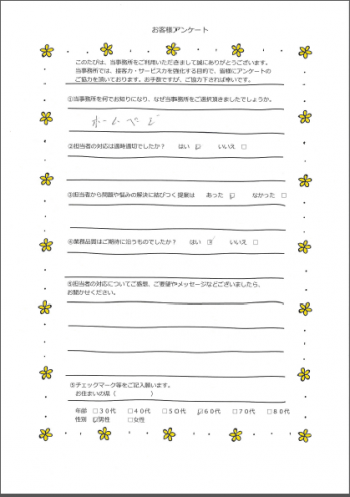 お客様アンケート
このたびは、当事務所をご利用いただきまして誠にありがとうございます。
当事務所では、接客力・サービス力を強化する目的で、皆様にアンケートの
ご協力を頂いております。お手数ですが、ご協力下されば幸いです。
①当事務所を何でお知りになり、なぜ当事務所をご選択頂きましたでしょうか。
ホームページ
②担当者の対応は適時適切でしたか? はい ☑ いいえ □
③担当者から問題や悩みの解決に結びつく提案は あった ☑ なかった □
④業務品質はご期待に沿うものでしたか? はい ☑ いいえ □
⑤担当者の対応についてご感想、ご要望やメッセージなどございましたら、
お聞かせください。
⑤チェックマーク等をご記入願います。
お住まいの県( )
年齢 □30代 □40代 □50代 ☑60代 □70代 □80代
性別 ☑男性 □女性